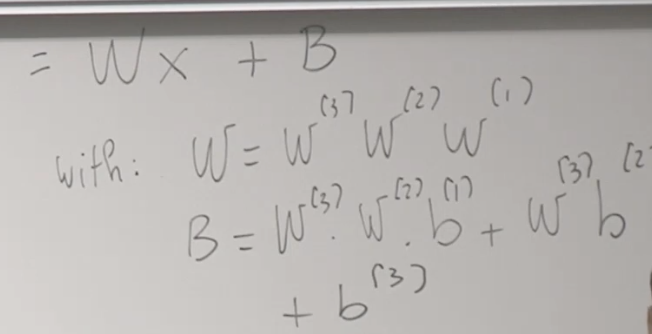 = Wx + B
with: W = W⁽³⁾ W⁽²⁾ W⁽¹⁾
B = W⁽³⁾ . W⁽²⁾ . b⁽¹⁾ + W⁽³⁾ b⁽²
+ b⁽³⁾